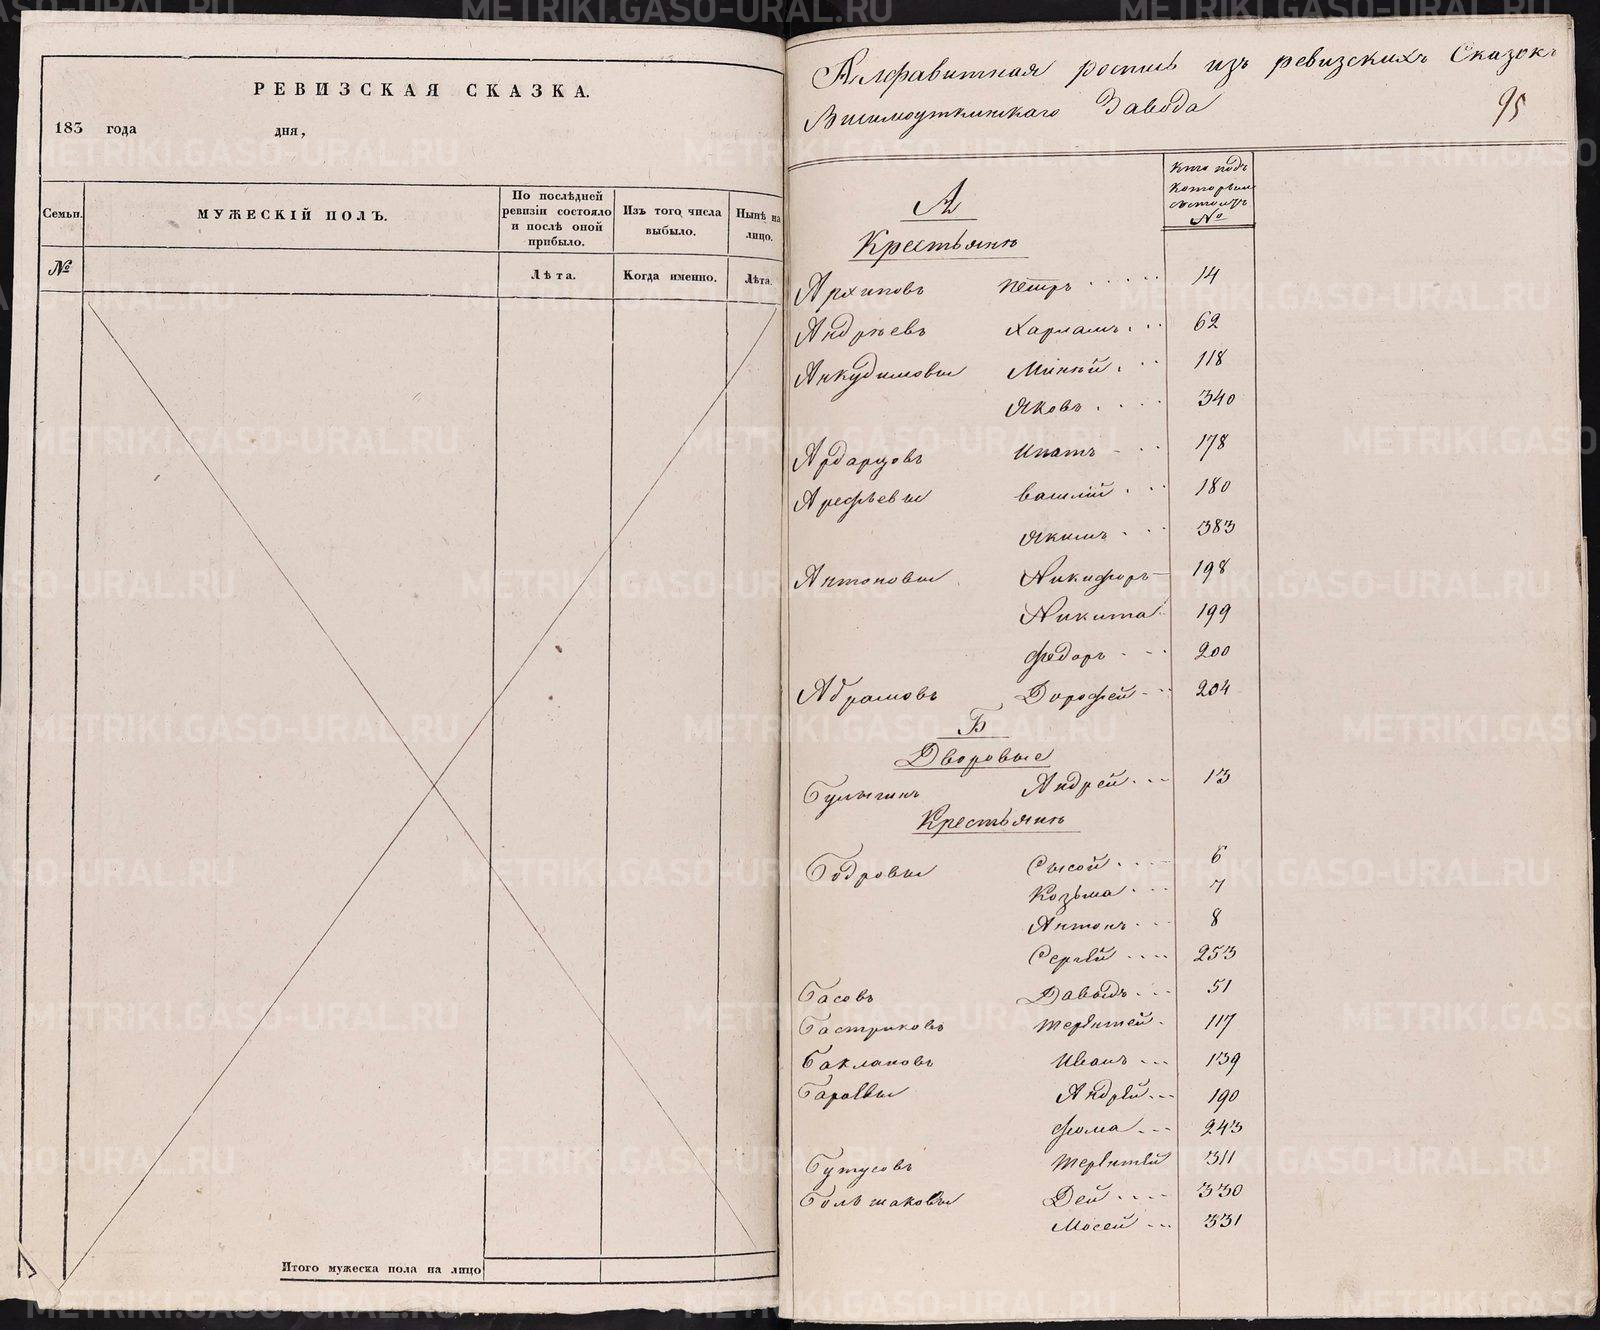 РЕВИЗСКАЯ СКАЗКА.
183 года дня,
Семьи.
МУЖЕСКІЙ ПОЛЪ.
По послѣдней ревизіи состояло и послѣ оной прибыло.
Изъ того числа выбыло.
Нынѣ на лицо.
№
Лѣта.
Когда именно.
Лѣта.
Итого мужеска пола на лицо
Алфавитная роспись изъ ревизскихъ Сказокъ
Висимоуткинскаго Завода
95
Кто подъ
которымъ
состоитъ
№
А
Крестьянѣ
Архиповъ Петръ 14
Андрѣевъ Харламъ 62
Анкудимовы Минѣй 118
Яковъ 340
Ардарцовъ Ипатъ 178
Арефьевы Василій 180
Якимъ 383
Антоновы Никифоръ 198
Никита 199
Федоръ 200
Абрамовъ Дорофей 204
Б
Дворовые
Булыгинъ Андрей 13
Крестьянѣ
Бодровы Сысой 6
Козьма 7
Антонъ 8
Сергѣй 253
Басовъ Давыдъ 51
Бастриковъ Терентей 117
Баклановъ Иванъ 139
Андрѣй 190
Фома 243
Бутусовъ Терентѣй 311
Большаковы Дей 330
Мосей 331
METRIKI.GASO-URAL.RU